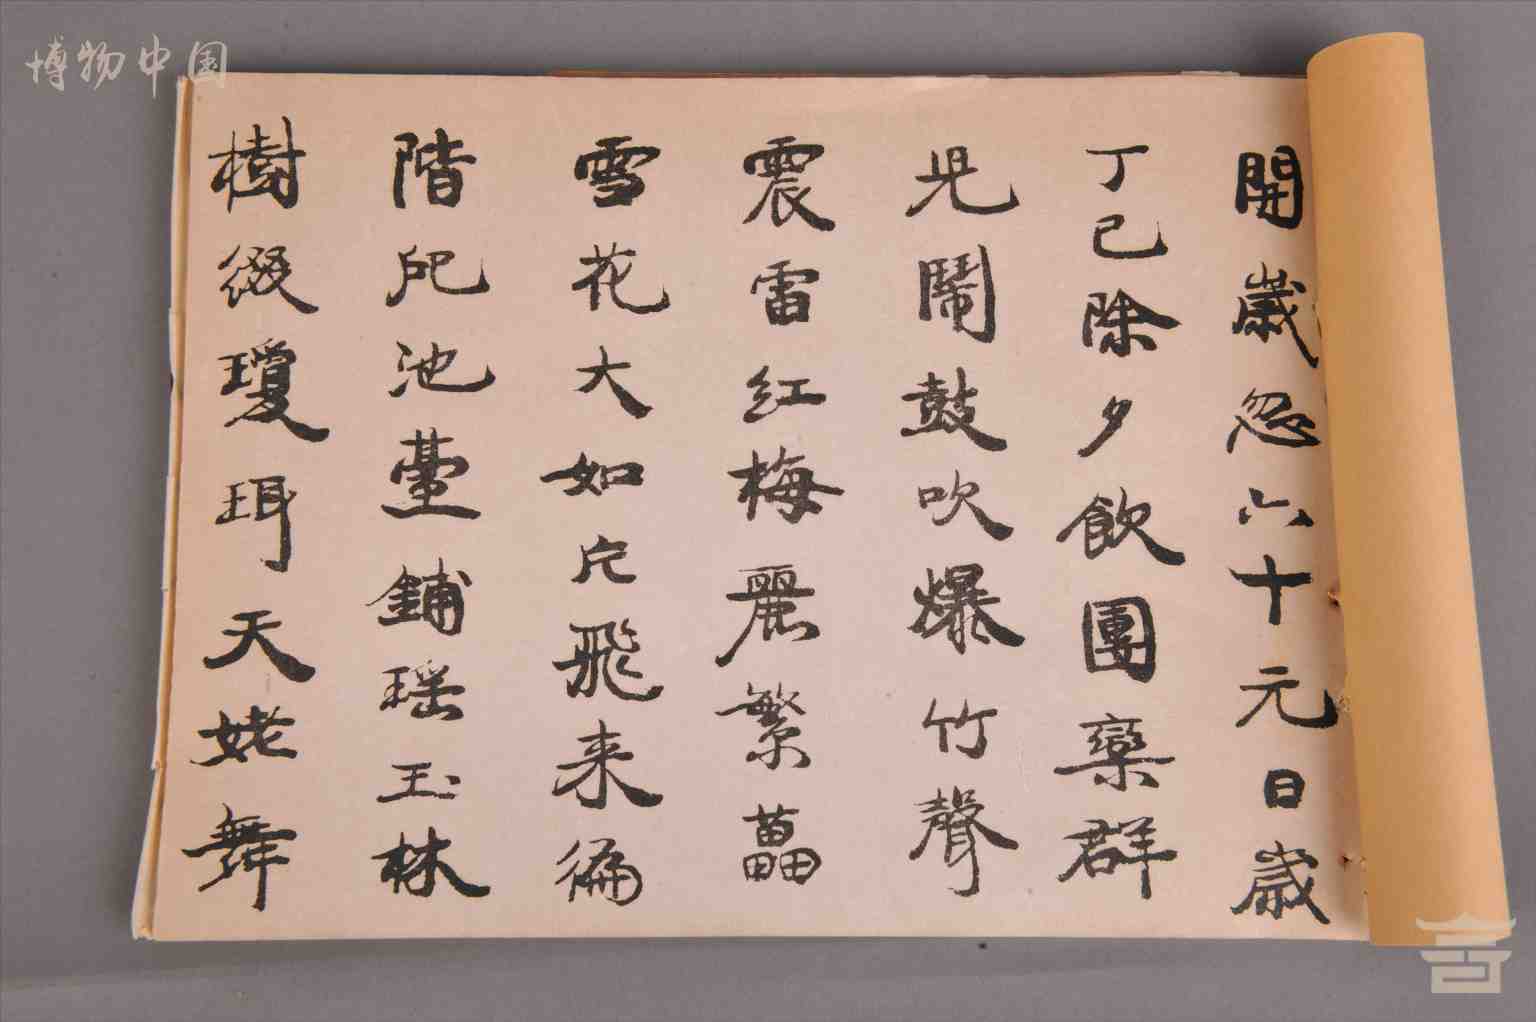 博物中国
開歲忽六十元日歲
丁巳除夕飲團欒群
児鬧鼓吹爆竹聲
震雷红梅麗繁蕌
雪花大如片飛来徧
階戺池臺鋪瑶玉林
樹綴瓊珥天姥舞